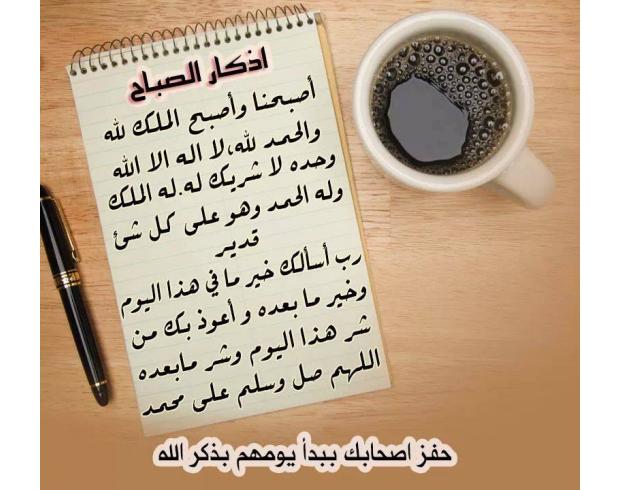 اذكار الصباح
أصبحنا وأصبح الملك لله
والحمد لله،لا اله الا الله
وحده لا شريك له.له الملك
وله الحمد وهو على كل شئ
قدير
رب أسألك خير ما في هذا اليوم
وخير ما بعده و أعوذ بك من
شر هذا اليوم وشر مابعده
اللهم صل وسلم على محمد
حفز اصحابك ببدأ يومهم بذكر الله